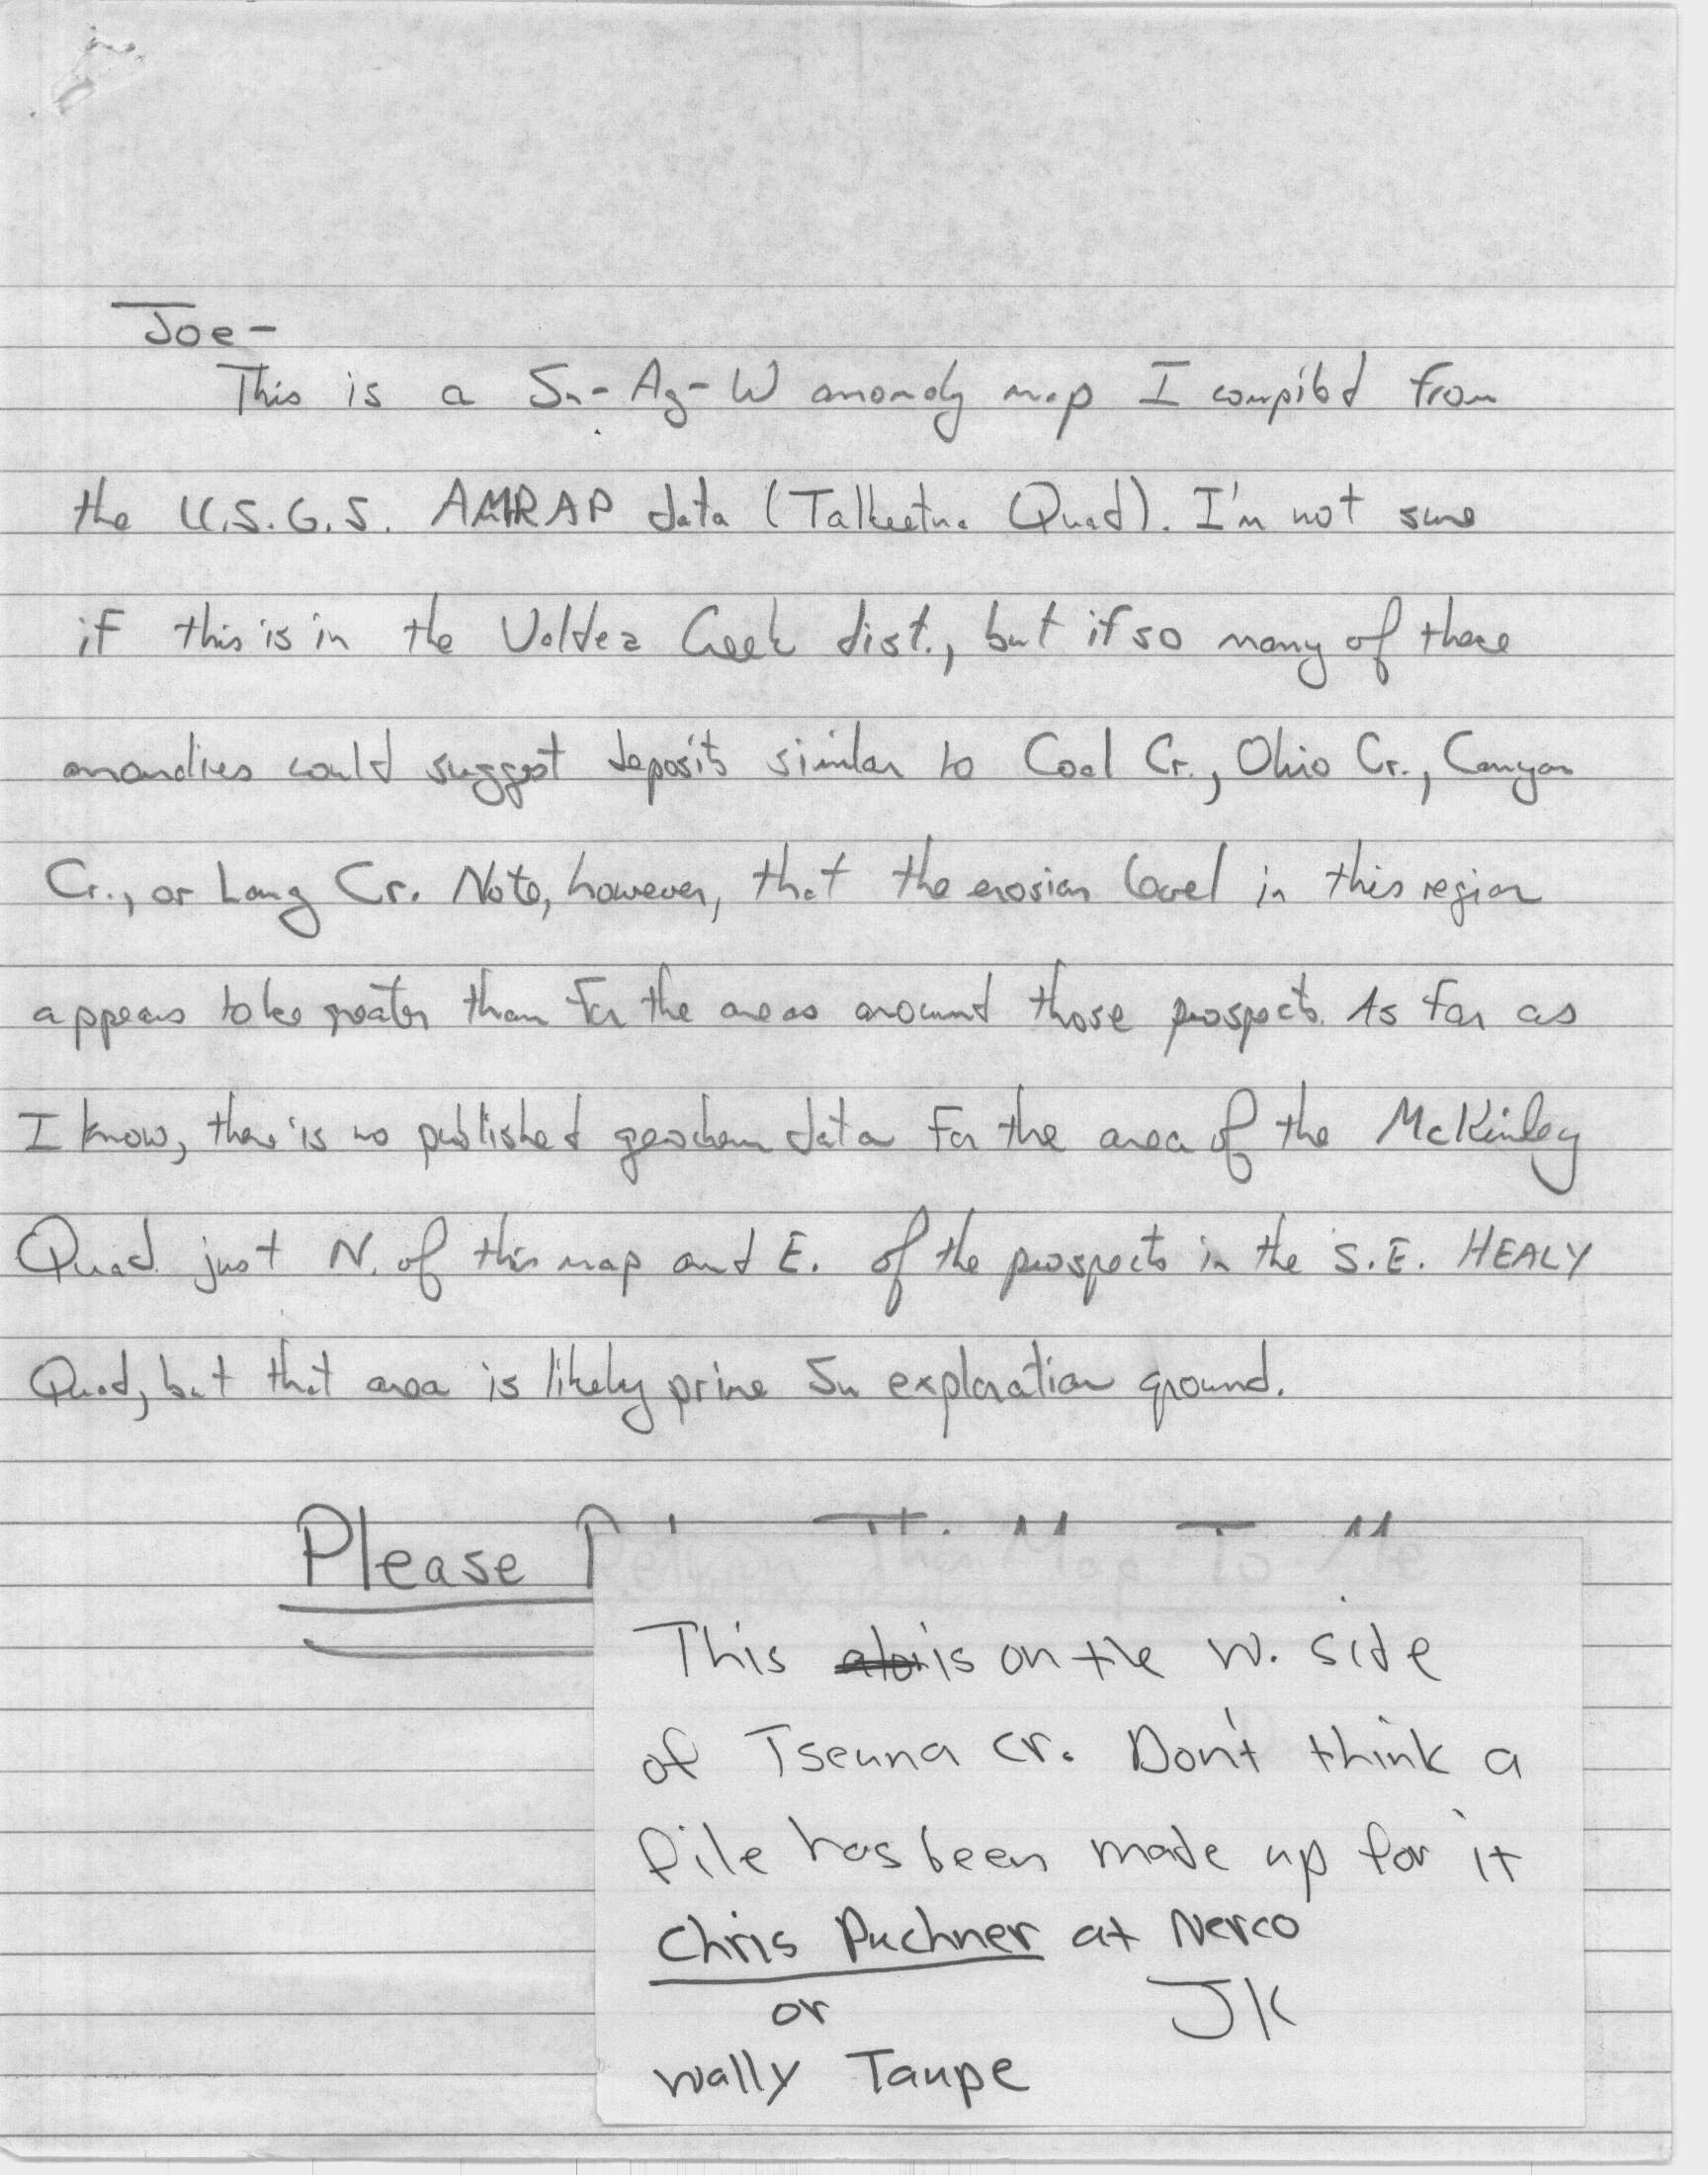 Joe-
This is a Sn-Ag-W anomaly map I compiled from
the U.S.G.S. AMRAP data (Talkeetna Quad). I'm not sure
if this is in the Valdez Creek dist., but if so many of these
anomalies could suggest deposits similar to Coal Cr., Ohio Cr., Canyon
Cr., or Long Cr. Note, however, that the erosion level in this region
appears to be greater than for the areas around those prospects. As far as
I know, there is no published geochem data for the area of the McKinley
Quad. just N. of this map and E. of the prospects in the S.E. HEALY
Quad, but that area is likely prime Sn exploration ground.
Please Return This Map To Me
This is on the W. side
of Tseuna Cr. Don't think a
file has been made up for it
Chris Puchner at Nerco
or JK
Wally Taupe